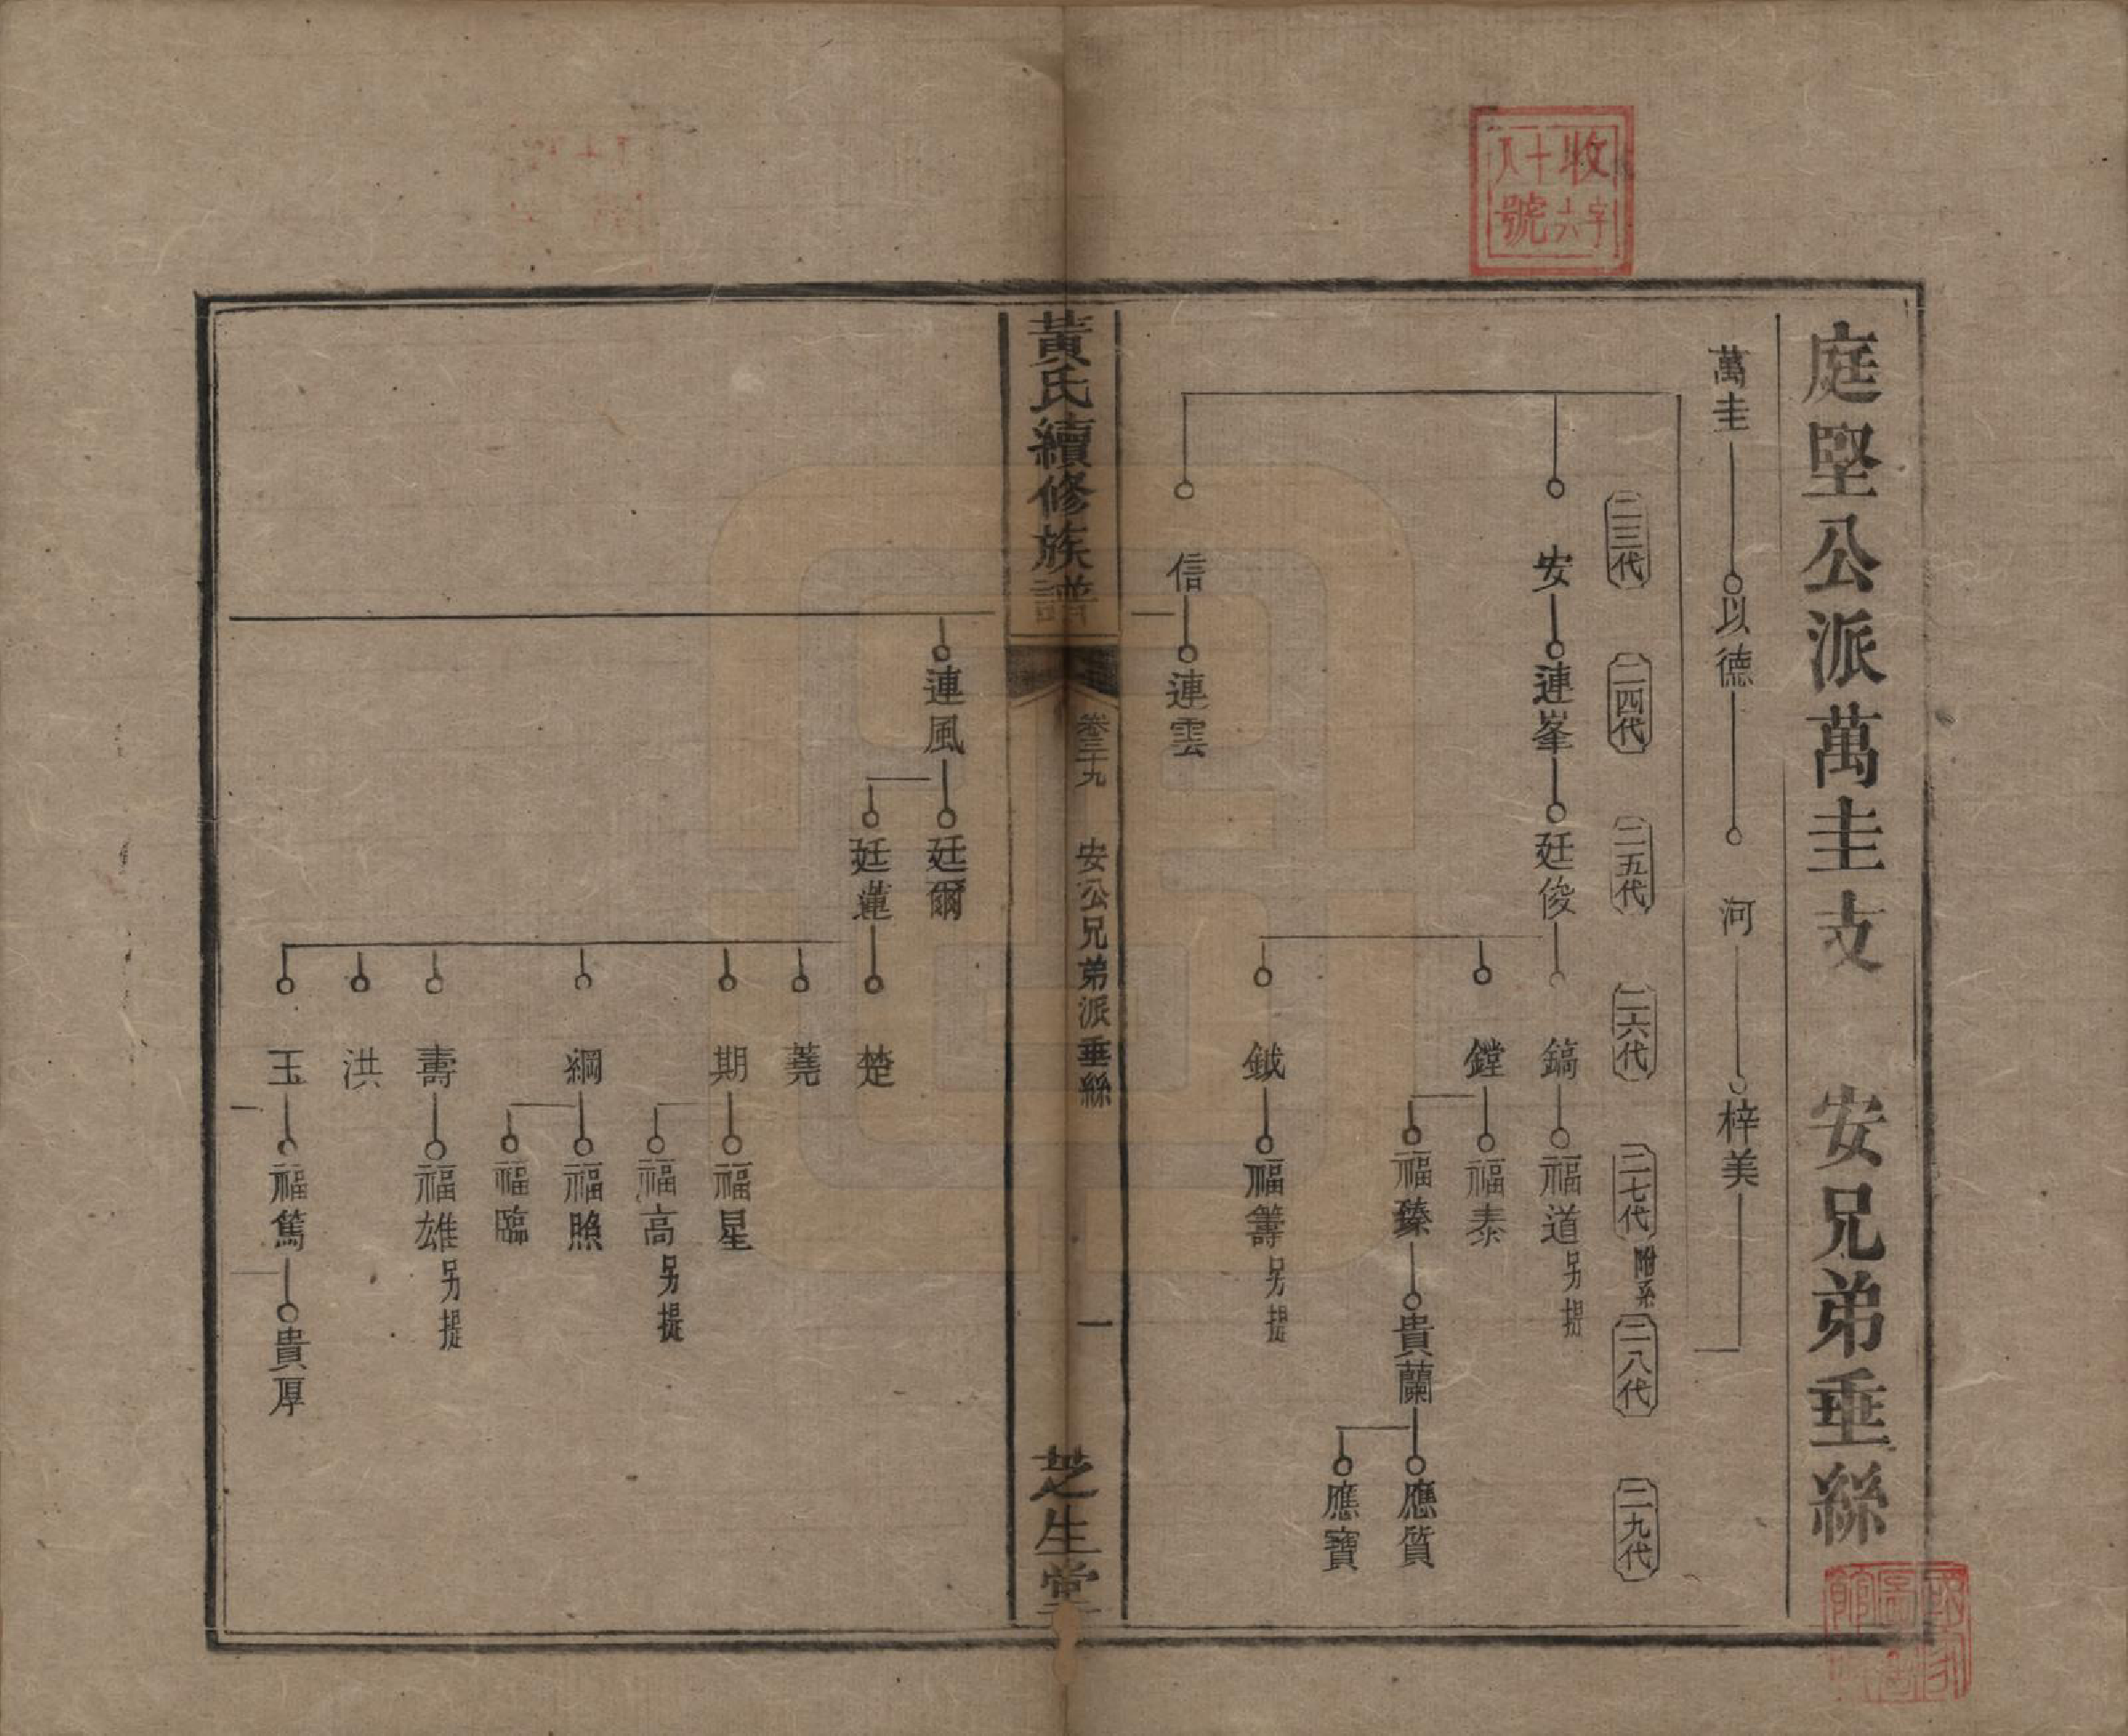 收字十六八號
庭堅公派萬圭支 安兄弟垂絲
萬圭 以德 河 梓美
二三代 二四代 二五代 二六代 二七代 附系 二八代 二九代
安 連峯 廷俊 鎬 福道 另提
鏜 福泰
福臻 貴蘭 應質
應寶
鉞 福籌 另提
信 連雲
黃氏續修族譜 卷三十九 安公兄弟派垂絲 一 芝生堂
連風 廷爾
廷蓮 楚
蕘
期 福星
福高 另提
綱 福照
福臨
壽 福雄 另提
洪
玉 福篤 貴厚